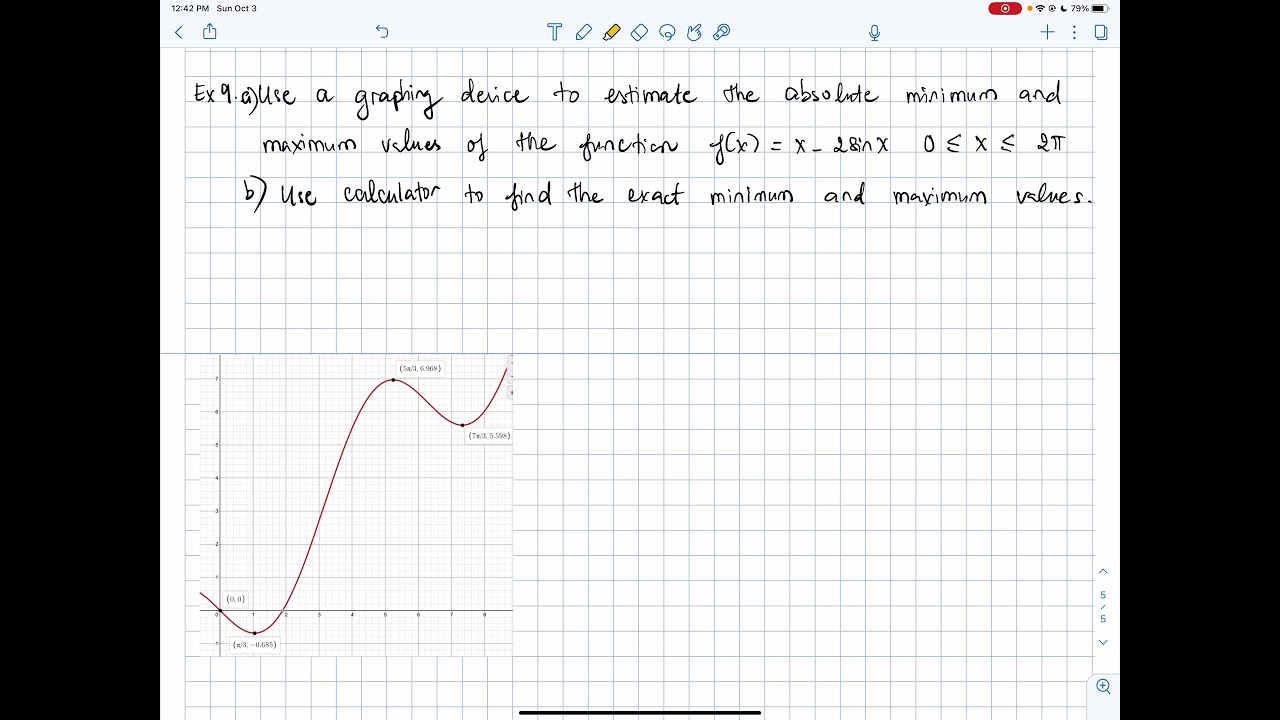 12:42 PM Sun Oct 3
79%
Ex 9. a) Use a graphing device to estimate the absolute minimum and
maximum values of the function f(x) = x - 2sinx 0 ≤ x ≤ 2π
b) Use calculator to find the exact minimum and maximum values.
(5π/3, 6.968)
7
6
(7π/3, 5.598)
5
4
3
2
1
(0, 0)
0 1 2 3 4 5 6 7 8
(π/3, −0.685)
-1
5
/
5